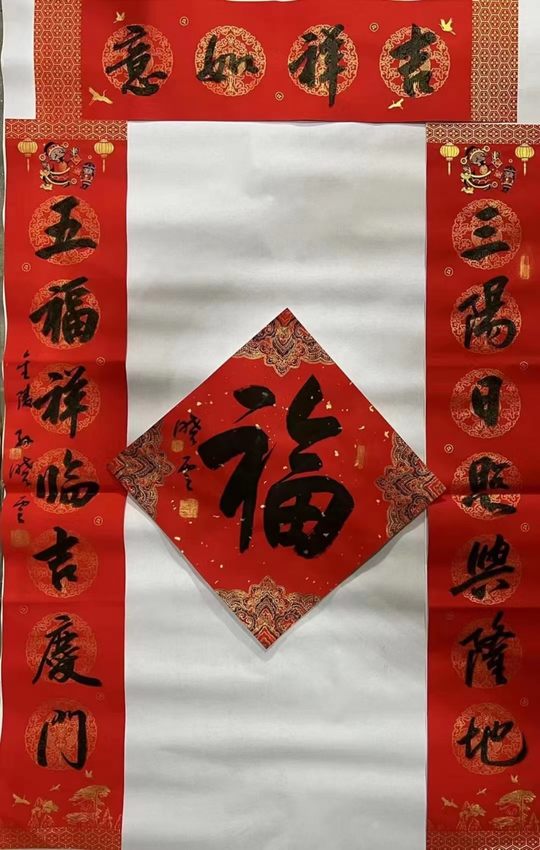 吉祥如意
三陽日照興隆地
五福祥临吉慶門
金陵孙晓雲
福
晓雲